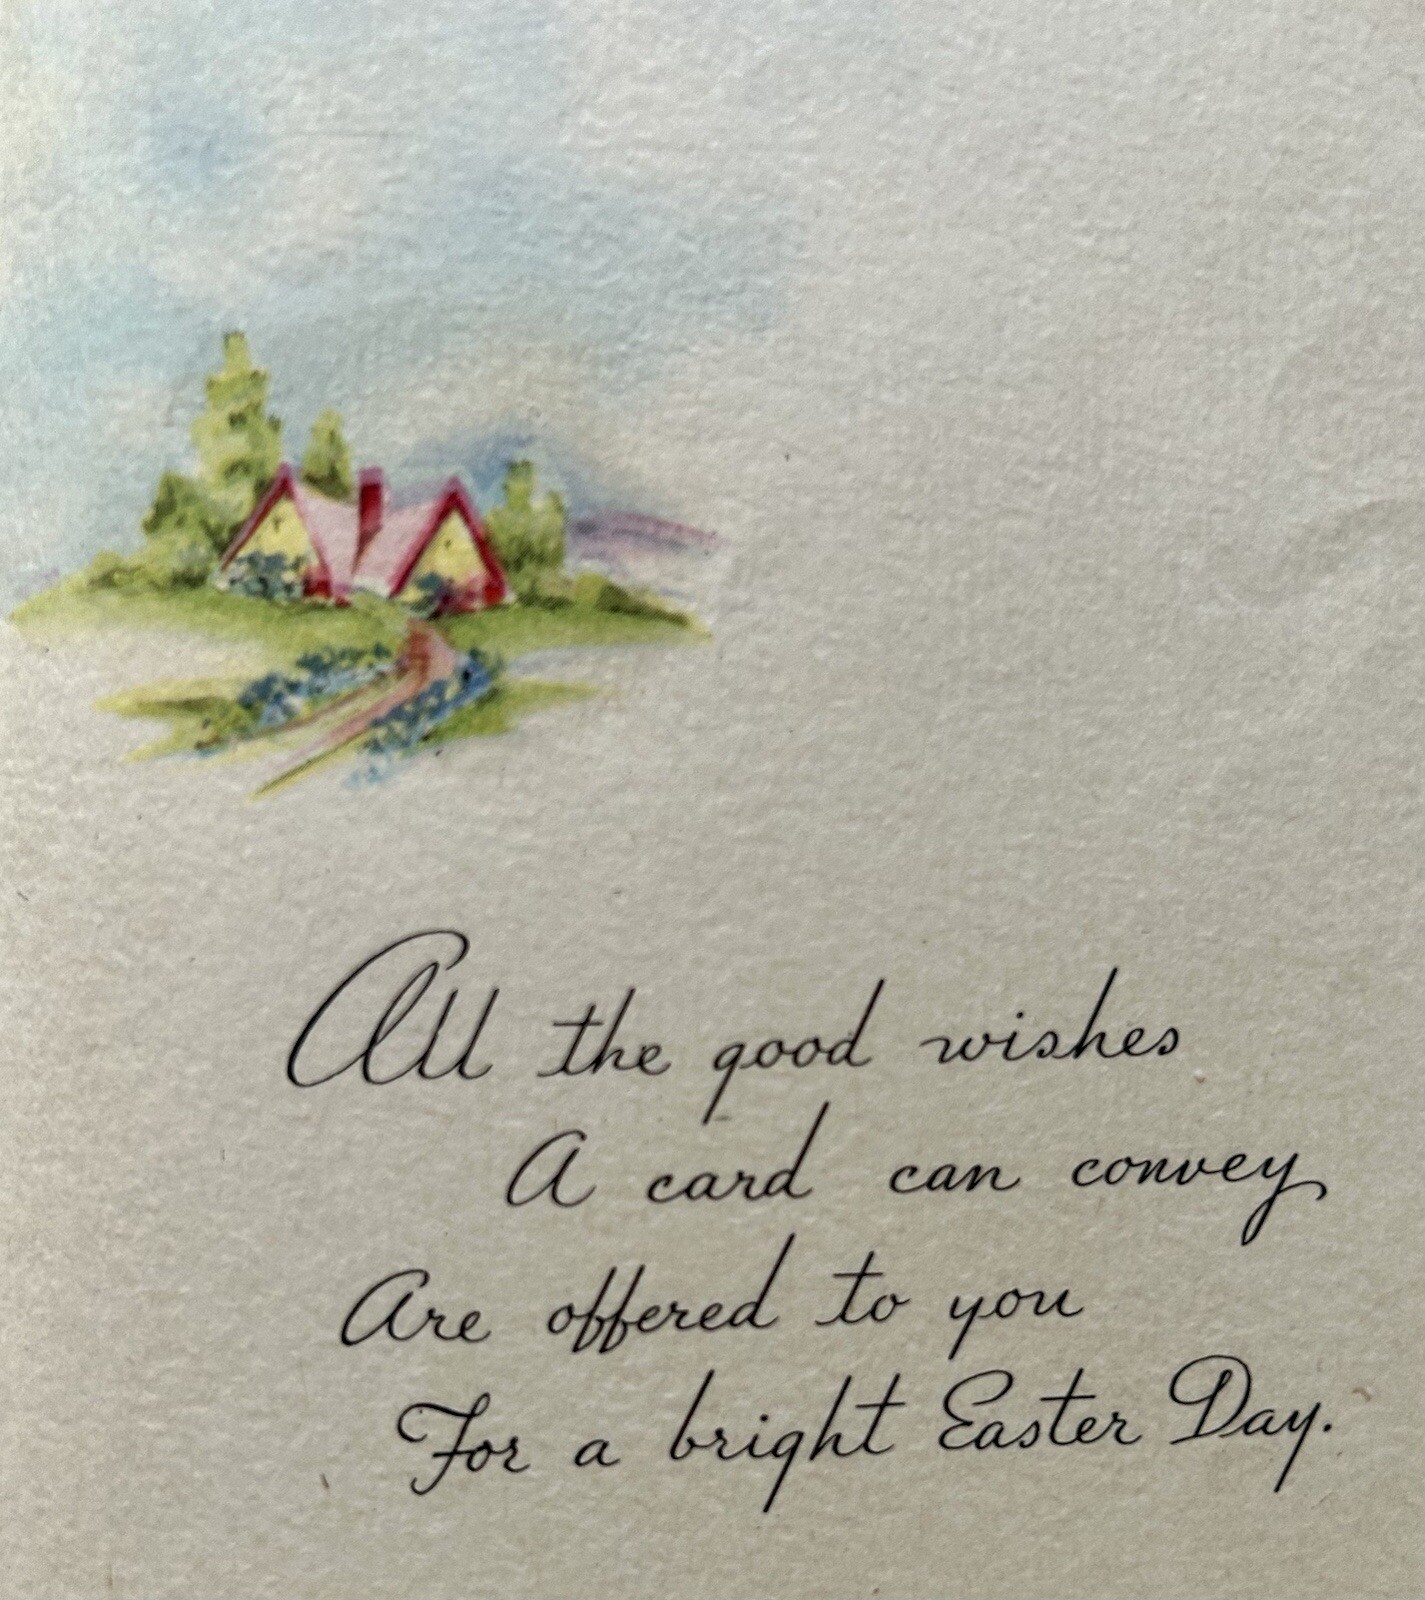 All the good wishes
A card can convey
Are offered to you
For a bright Easter Day.